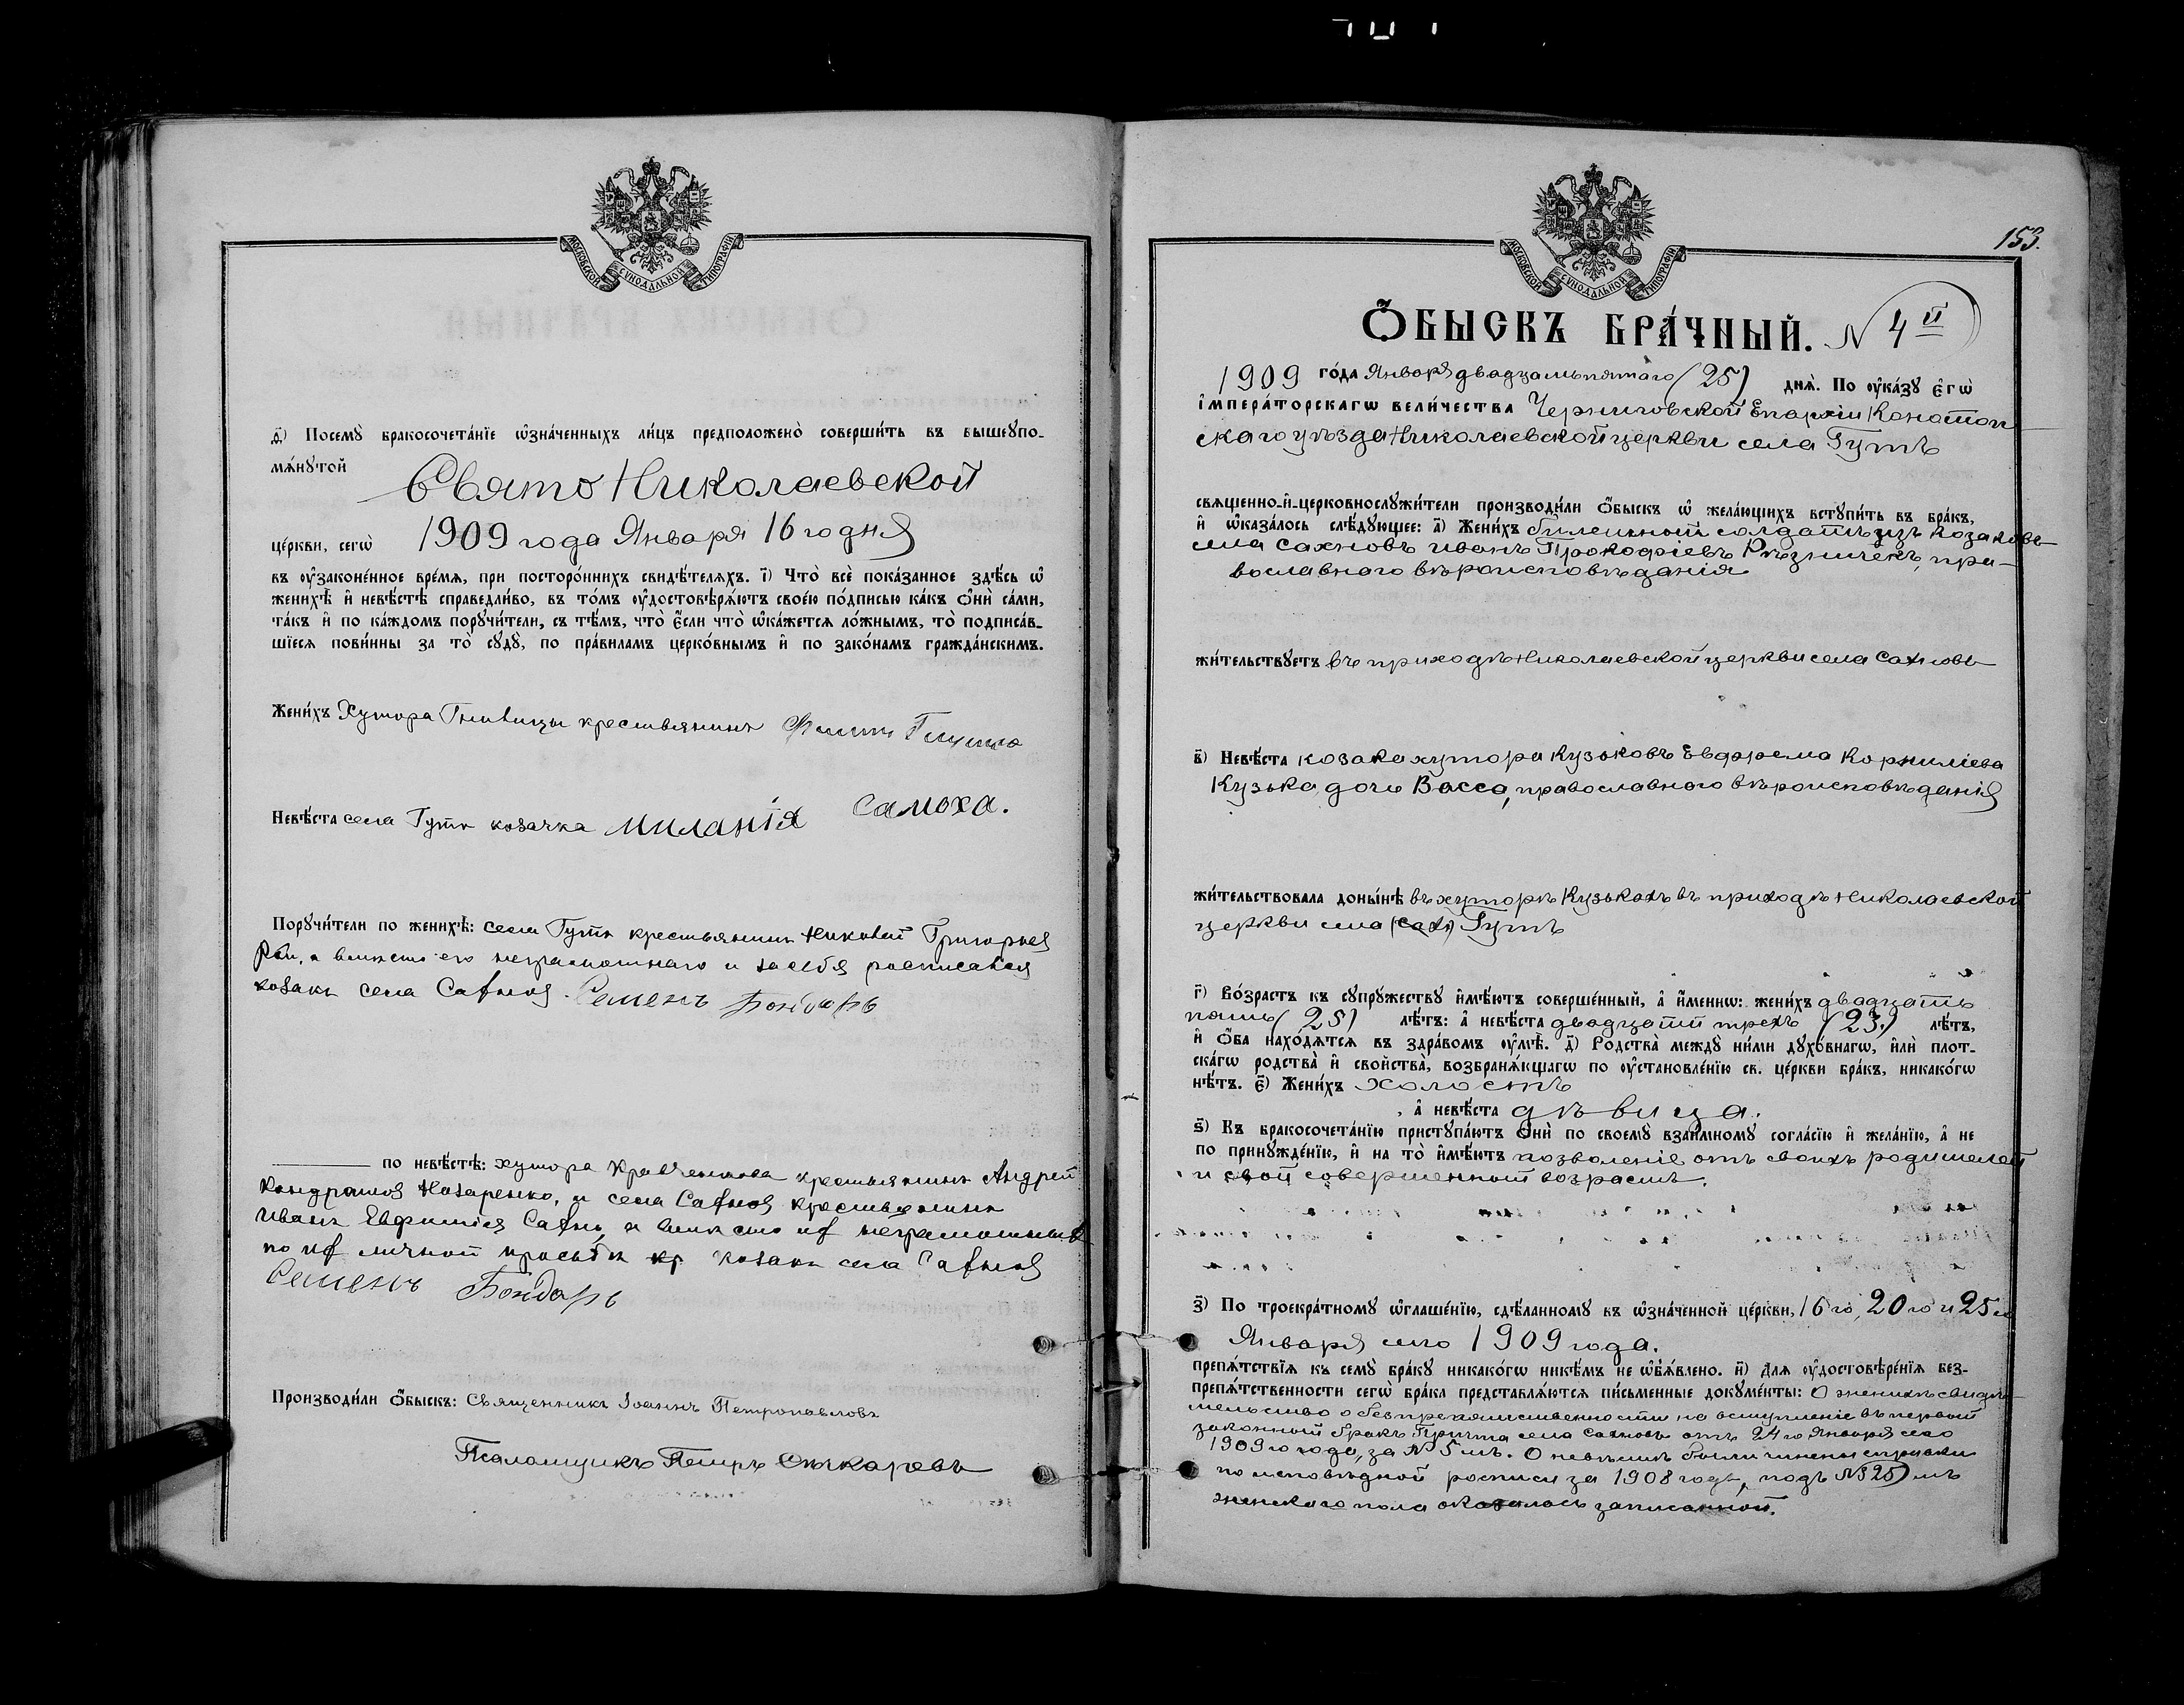 МОСКОВСКОЙ СѴНОДАЛЬНОЙ ТИПОГРАФІИ
д҃) Посемꙋ̀ бракосочета́нїе ѡ҆зна́ченныхъ ли́цъ предположено̀ соверши́ть въ вышеꙋпо-
мѧ́нꙋтой Свято Николаевской
це́ркви, сегѡ̀ 1909 года Января 16 го дня
въ ᲂу҆законе́нное вре́мѧ, при посторо́ннихъ свидѣ́телѧхъ. і҃) Что̀ всѐ пока́занное здѣ́сь ѡ҆
женихѣ̀ и҆ невѣ́стѣ справедли́во, въ то́мъ ᲂу҆достовѣрѧ́ютъ свое́ю по́дписью ка́къ ѻ҆нѝ са́ми,
та́къ и҆ по ка́ждомъ порꙋчи́тели, съ тѣ́мъ, что̀ є҆́сли что̀ ѡ҆ка́жетсѧ ло́жнымъ, то̀ подписа́в-
шїесѧ пови́нны за то̀ сꙋдꙋ̀, по пра́виламъ церко́внымъ и҆ по зако́намъ гражда́нскимъ.
Жени́хъ Хутора крестьянинъ
Невѣ́ста села Гутъ козачка Миланія Самоха.
Порꙋчи́тели по женихѣ̀: села Гутъ крестьянинъ Николай Григорьев
а вместо его неграмотнаго и за себя росписался
козакъ села Сахнов Семенъ Бондарь
по невѣ́стѣ: хутора крестьянинъ Андрей
Кондратов Назаренко, и села Сахнов крестьянинъ
Иванъ Евфиміев Сахнъ, а вместо их неграмотныхъ
по их личной просьбѣ кр козакъ села Сахнов
Семенъ Бондарь
Производи́ли ѻ҆́быскъ: Священникъ Іоаннъ Петропавловъ
Псаломщикъ Петръ Снѣкаревъ
153.
МОСКОВСКОЙ СѴНОДАЛЬНОЙ ТИПОГРАФІИ
Ѻ҆́БЫСКЪ БРА́ЧНЫЙ. N 4й
1909 го́да Января двадцать пятаго (25) днѧ̀. По ᲂу҆ка́зꙋ є҆гѡ̀
і҆мпера́торскагѡ вели́чества Черниговской Епархіи Конотоп
скаго уѣзда Николаевской церкви села Гутъ
свѧщенно-и҆-церковнослꙋжи́тели производи́ли ѻ҆́быскъ ѡ҆ жела́ющихъ встꙋпи́ть въ бра́къ,
и҆ ѡ҆каза́лось слѣ́дꙋющее: а҃) Жени́хъ билетной солдатъ изъ козаковъ
села Сахновъ Иванъ Прокофіевъ Рѣзниченкъ, пра-
вославного вѣроисповѣданія
жи́тельствꙋетъ въ приходѣ Николаевской церкви села Сахновъ
в҃) Невѣ́ста козака хутора Кузьковъ Евфрема Корниліева
Кузька дочь Васса, православного вѣроисповѣданія
жи́тельствовала доны́нѣ въ хуторѣ Кузькахъ въ приходѣ Николаевской
церкви села (Сах) Гутъ
г҃) Во́зрастъ къ сꙋпрꙋ́жествꙋ и҆мѣ́ютъ соверше́нный, а҆ и҆́меннѡ: жени́хъ двадцать
пять (25) лѣ́тъ: а҆ невѣ́ста двадцати трехъ (23.) лѣ́тъ,
и҆ ѻ҆́ба нахо́дѧтсѧ въ здра́вомъ ᲂу҆мѣ̀. д҃) Родства̀ междꙋ̀ ни́ми дꙋхо́внагѡ, и҆лѝ плот-
ска́гѡ родства̀ и҆ свойства̀, возбранѧ́ющагѡ по ᲂу҆становле́нїю св. це́ркви бра́къ, никако́гѡ
нѣ́тъ. є҃) Жени́хъ холостъ
, а҆ невѣ́ста дѣвица.
ѕ҃) Къ бракосочета́нїю пристꙋпа́ютъ ѻ҆нѝ по своемꙋ̀ взаи́мномꙋ согла́сїю и҆ жела́нїю, а҆ не
по принꙋжде́нїю, и҆ на то̀ и҆мѣ́ютъ позволеніе отъ своихъ родителей
и свой совершенной возрастъ.
з҃) По троекра́тномꙋ ѡ҆глаше́нїю, сдѣ́ланномꙋ въ ѡ҆зна́ченной це́ркви, 16 го, 20 го и 25 го
Января сего 1909 года.
препѧ́тствїѧ къ семꙋ̀ бра́кꙋ никако́гѡ никѣ́мъ не ѡ҆б̾ѧ́влено. и҃) Длѧ ᲂу҆достовѣре́нїѧ без-
препѧ́тственности сегѡ̀ бра́ка представлѧ́ютсѧ пи́сьменные докꙋме́нты: О женихѣ свидѣ-
тельство о безпрепятственности на вступленіе въ первый
законный бракъ Причта села Сахновъ отъ 24 го Января сего
1909 го года, за № 5 мъ. О невѣстѣ были справки
по исповѣдной росписи за 1908 годъ, подъ № 25 мъ
женскаго пола оказалась записанной.